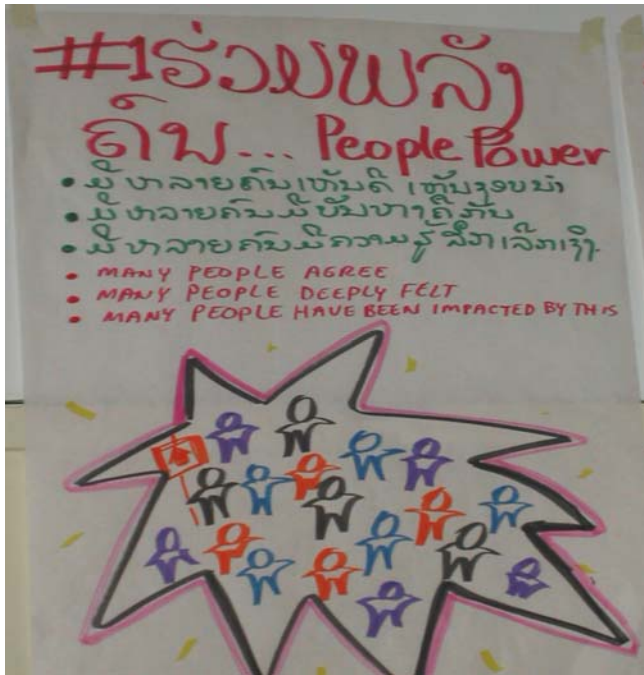 #1ຮ່ວມພລັງ
ຄົນ... People Power
• ມີຫລາຍຄົນເຫັນດີ ເຫັນຊອບນຳ
• ມີຫລາຍຄົນມີບັນຫາຄືກັນ
• ມີຫລາຍຄົນມີຄວາມຮູ້ສຶກເລິກເຊິ່ງ.
• MANY PEOPLE AGREE
• MANY PEOPLE DEEPLY FELT
• MANY PEOPLE HAVE BEEN IMPACTED BY THIS